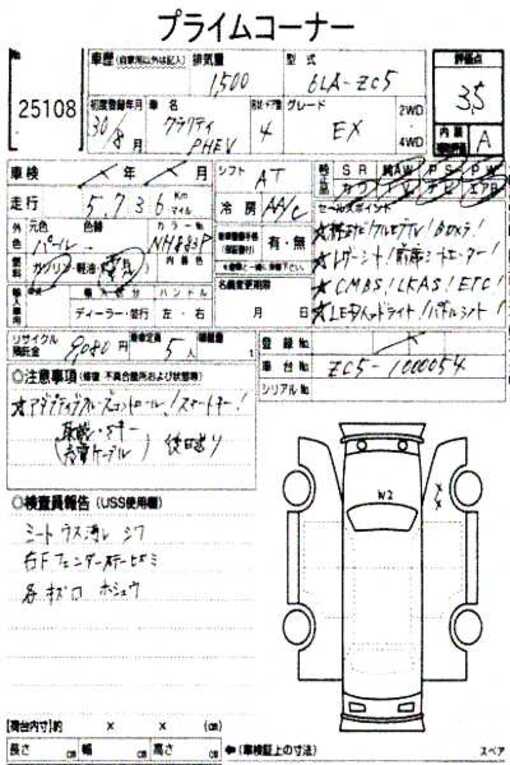 プライムコーナー
No
25108
車歴 (自家用以外は記入) 排気量 型式
1,500 6LA-ZC5
評価点
3.5
初度登録年月 車名 ドア数 グレード 2WD
30/8月 クラリティ PHEV 4 EX 4WD
内装 A
車検 年 月 シフト AT
SR AW PS PW
カワ TV ナビ エアB
走行 5,736 Km マイル 冷房 AA/C
セールスポイント
外色 元色 色替 カラーNo
パール NH883P
有・無
★純正ナビ!フルセグTV!Bカメラ!
★レザーシート!前席シートヒーター!
★CMBS!LKAS!ETC!
★LEDヘッドライト!パドルシフト!
燃料 ガソリン・軽油(電気) 内装色
名義変更期限
月 日
ハンドル
ディーラー・並行 左・右
リサイクル預託金 9080円 乗車定員 5人 積載量
登録No
車台No ZC5-1000054
シリアルNo
◎注意事項 (修復 不具合箇所および状態等)
★アダプティブクルーズコントロール!スマートキー!
(充電ケーブル) 後日送り
◎検査員報告 (USS使用欄)
シートウス汚レ シワ
右Fフェンダーステーヒズミ
各キズロ ホシュウ
W2
[荷台内寸]約 × × (cm)
長さ cm 幅 cm 高さ cm ←(車検証上の寸法) スペア